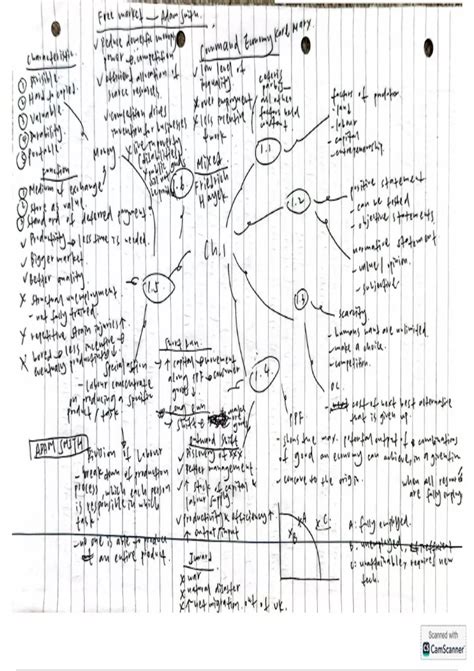 Free market — Adam Smith.
✓ Reduce domestic monopoly
power → competition
✓ efficient allocation of
scarce resources.
✓ competition drives
innovation for businesses
X
Command Economy Karl Marx.
✓ low level of
inequality
X over employment
X less incentive
to work
ceteris
paribus
all other
factors held
constant
Characteristics
① Divisible
② Hard to copied
③ Valuable
④ Durability
⑤ Portable
Function
① Medium of exchange
② Store of value
③ Standard of deferred payment
Money
Mixed
Friedrich
Hayek
Ch.1
1.1
factors of production
- land
- labour
- capital
- entrepreneurship.
1.2
positive statement
- can be tested
- objective statements
normative statement
- value / opinion.
- subjective
scarcity.
- humans want are unlimited
- make a choice.
- competition.
OC.
- cost of next best alternative
that is given up.
1.4.
PPF
- shows the max. potential output of combinations
of good an economy can achieve, in a given time
when all resources
are fully employed
- concave to the origin.
X C.
X A
X B
A: fully employed.
B: unemployed,
C: unattainable, requires new
tech.
1.5
✓ Productivity ↑ → less time is needed.
✓ Bigger market.
✓ Better quality
X structural unemployment.
- not fully trained.
X repetitive strain injuries ↑
X bored → less incentive →
eventually productivity ↓
Specialisation
- labour concentrate
on producing a specific
product / task.
ADAM SMITH
Division of Labour
- breakdown of production
process, which each person
is responsible in which
task.
- no one is able to produce
an entire product.
Short run.
↑ capital → movement
along PPF → consumer
goods ↓
Long run
Outward Shift
✓ Discovery of xxx
✓ better management
✓ ↑ stock of capital &
labour supply
✓ productivity & efficiency ↑
✓ output / input
Inward
X war
X natural disaster
X net migration out of UK.
Scanned with
CamScanner